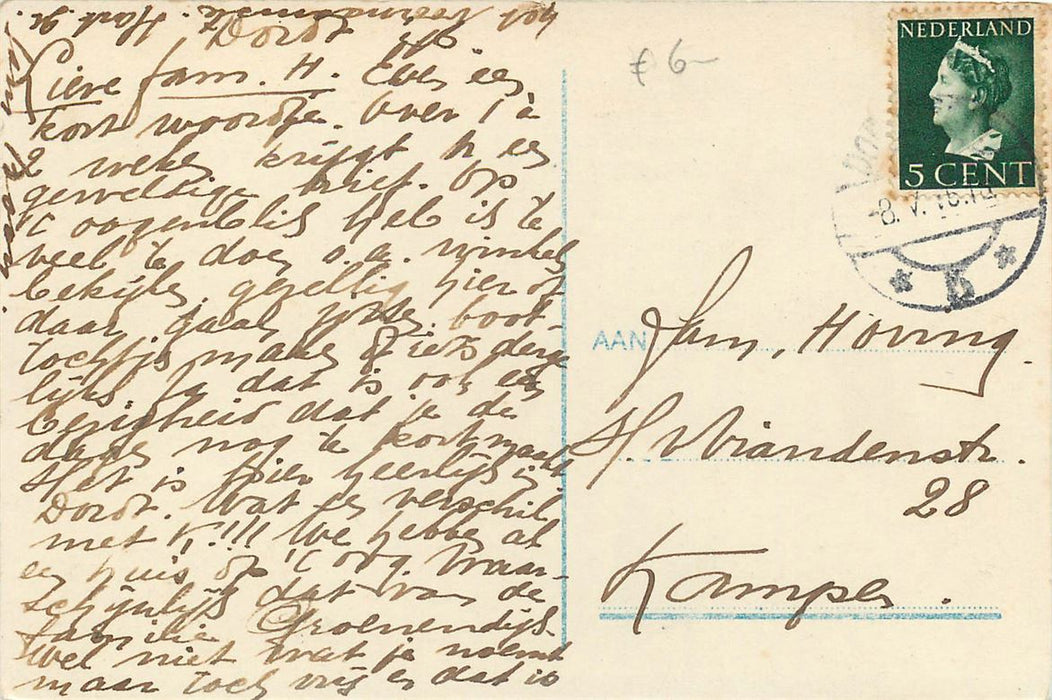 het voornaamste. Hart. gr.
Dordt
Lieve fam. H. Even een
kort woordje. Over 1 à
2 weken krijgt U een
geweldige brief. Op
't oogenblik heb is te
veel te doen o.a. winkels
bekijken, gezellig hier of
daar gaan zitten. boot-
tochtjes maken of iets derge
lijks. Ja dat is ook een
bezigheid dat je de
dagen nog te kort maakt
Het is hier heerlijk in
Dordt. Wat een verschil
met K!!! We hebben al
een huis op 't oog. Waar-
schijnlijk dat van de
familie Groenendijk.
Wel niet wat je noemt
maar toch vrij en dat is
€ 6-
NEDERLAND
5 CENT
-8. V.
AAN Fam. Höving.
H. Wiandenstr.
28
Kampen.